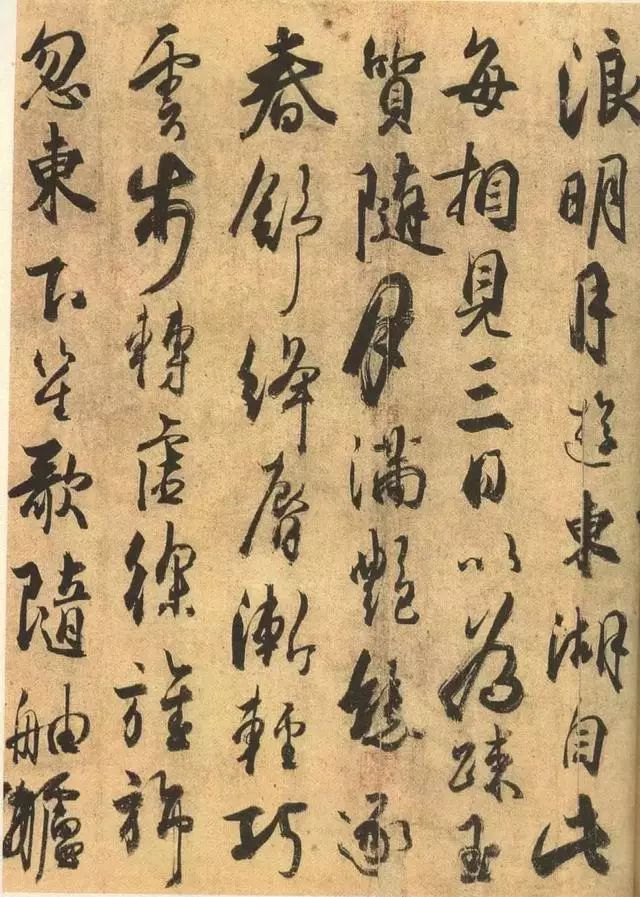 浪明月遊東湖自此
每相見三日以為踈玉
質隨月滿艷態逐
春舒絳脣漸輕巧
雲步轉虛徐旌旆
忽東下笙歌隨舳艫